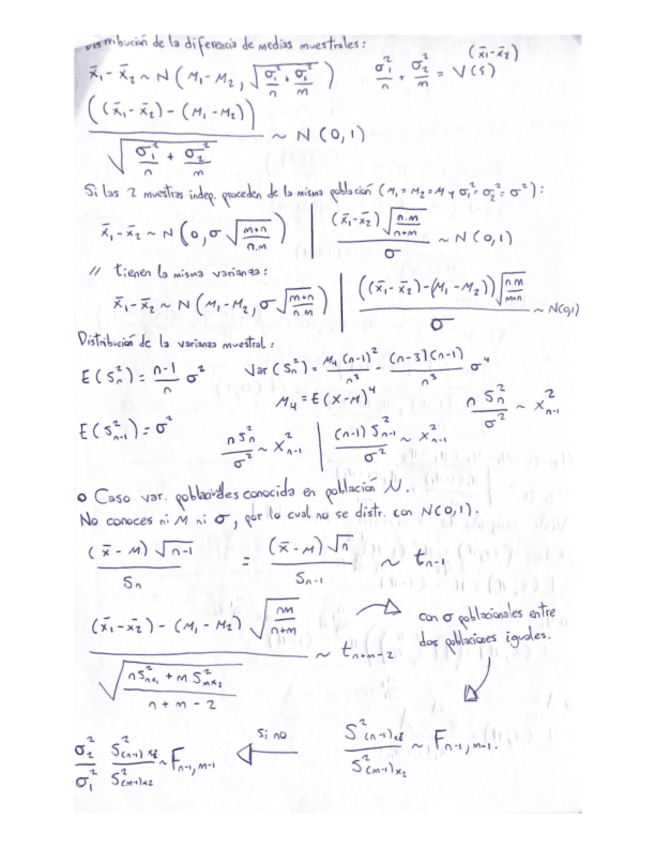 Distribución de la diferencia de medias muestrales:
x̄₁ - x̄₂ ~ N (M₁-M₂, √(σ₁²/n + σ₂²/m)) σ₁²/n + σ₂²/m = V(S) (x̄₁-x̄₂)
((x̄₁ - x̄₂) - (M₁ - M₂)) / √(σ₁²/n + σ₂²/m) ~ N (0,1)
Si las 2 muestras indep. proceden de la misma población (M₁ = M₂ = M y σ₁² = σ₂² = σ²):
x̄₁ - x̄₂ ~ N (0, σ √((m+n)/(n.m))) | (x̄₁-x̄₂) √((n.m)/(n+m)) / σ ~ N (0,1)
// tienen la misma varianza:
x̄₁ - x̄₂ ~ N (M₁-M₂, σ √((m+n)/(n.m))) | ((x̄₁-x̄₂)-(M₁-M₂)) √(nm/(m+n)) / σ ~ N(0,1)
Distribución de la varianza muestral:
E (Sₙ²) = (n-1)/n σ² Var (Sₙ²) = M₄ (n-1)²/n³ - (n-3)(n-1)/n³ σ⁴
M₄ = E (X-M)⁴ n Sₙ²/σ² ~ X²ₙ₋₁
E (S²ₙ₋₁) = σ² n Sₙ²/σ² ~ X²ₙ₋₁ | (n-1) S²ₙ₋₁/σ² ~ X²ₙ₋₁
o Caso var. poblacionales conocida en población N.
No conoces ni M ni σ, por lo cual no se distr. con N(0,1).
(x̄ - M) √(n-1) / Sₙ = (x̄ - M) √n / Sₙ₋₁ ~ tₙ₋₁
(x̄₁ - x̄₂) - (M₁ - M₂) √(nm/(n+m)) / √((nS²ₙₓ₁ + m S²ₘₓ₂)/(n + m - 2)) ~ tₙ₊ₘ₋₂
con σ poblacionales entre
dos poblaciones iguales.
S²₍ₙ₋₁₎ₓ₁ / S²₍ₘ₋₁₎ₓ₂ ~ Fₙ₋₁,ₘ₋₁.
Si no
σ₂²/σ₁² S²₍ₙ₋₁₎ₓ₁ / S²₍ₘ₋₁₎ₓ₂ ~ Fₙ₋₁,ₘ₋₁